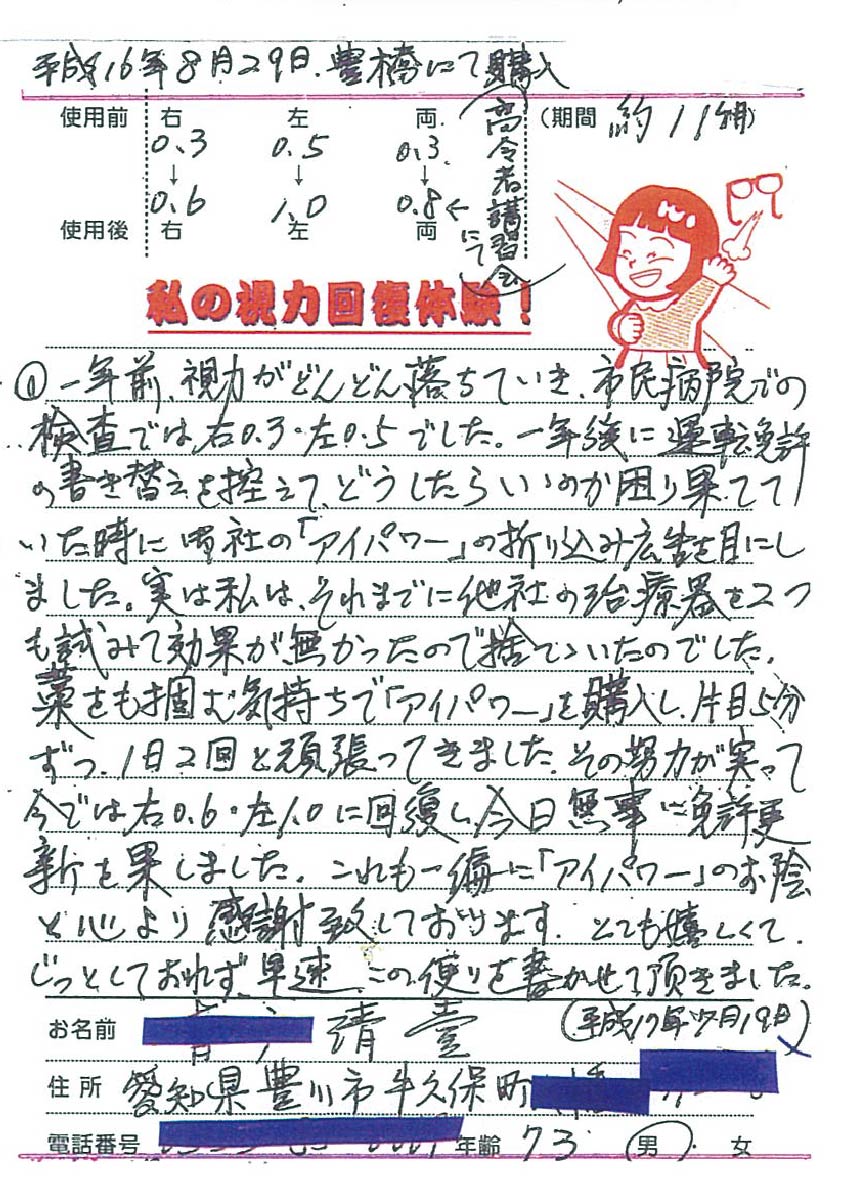 平成16年8月29日.豊橋にて購入
使用前 右 左 両. (期間 約11ヶ月)
0.3 0.5 0.3
↓ ↓ ↓
0.6 1.0 0.8←
使用後 右 左 両
高令者講習会にて
私の視力回復体験!
① 一年前、視力がどんどん落ちていき、市民病院での
検査では、右0.3・左0.5でした。一年後に運転免許
の書き替えを控えて、どうしたらいいのか困り果てて
いた時に御社の「アイパワー」の折り込み広告を目にし
ました。実は私は、それまでに他社の治療器を2つ
も試みて効果が無かったので捨てていたのでした。
藁をも掴む気持ちで「アイパワー」を購入し、片目5分
ずつ、1日2回と頑張ってきました。その努力が実って
今では右0.6・左1.0に回復し、今日無事に免許更
新を果しました。これも一偏に「アイパワー」のお陰
と心より感謝致しております。とても嬉しくて、
じっとしておれず、早速、この便りを書かせて頂きました。
お名前 靖臺 (平成17年7月19日)
住所 愛知県豊川市牛久保町
電話番号 年齢 73 男・女